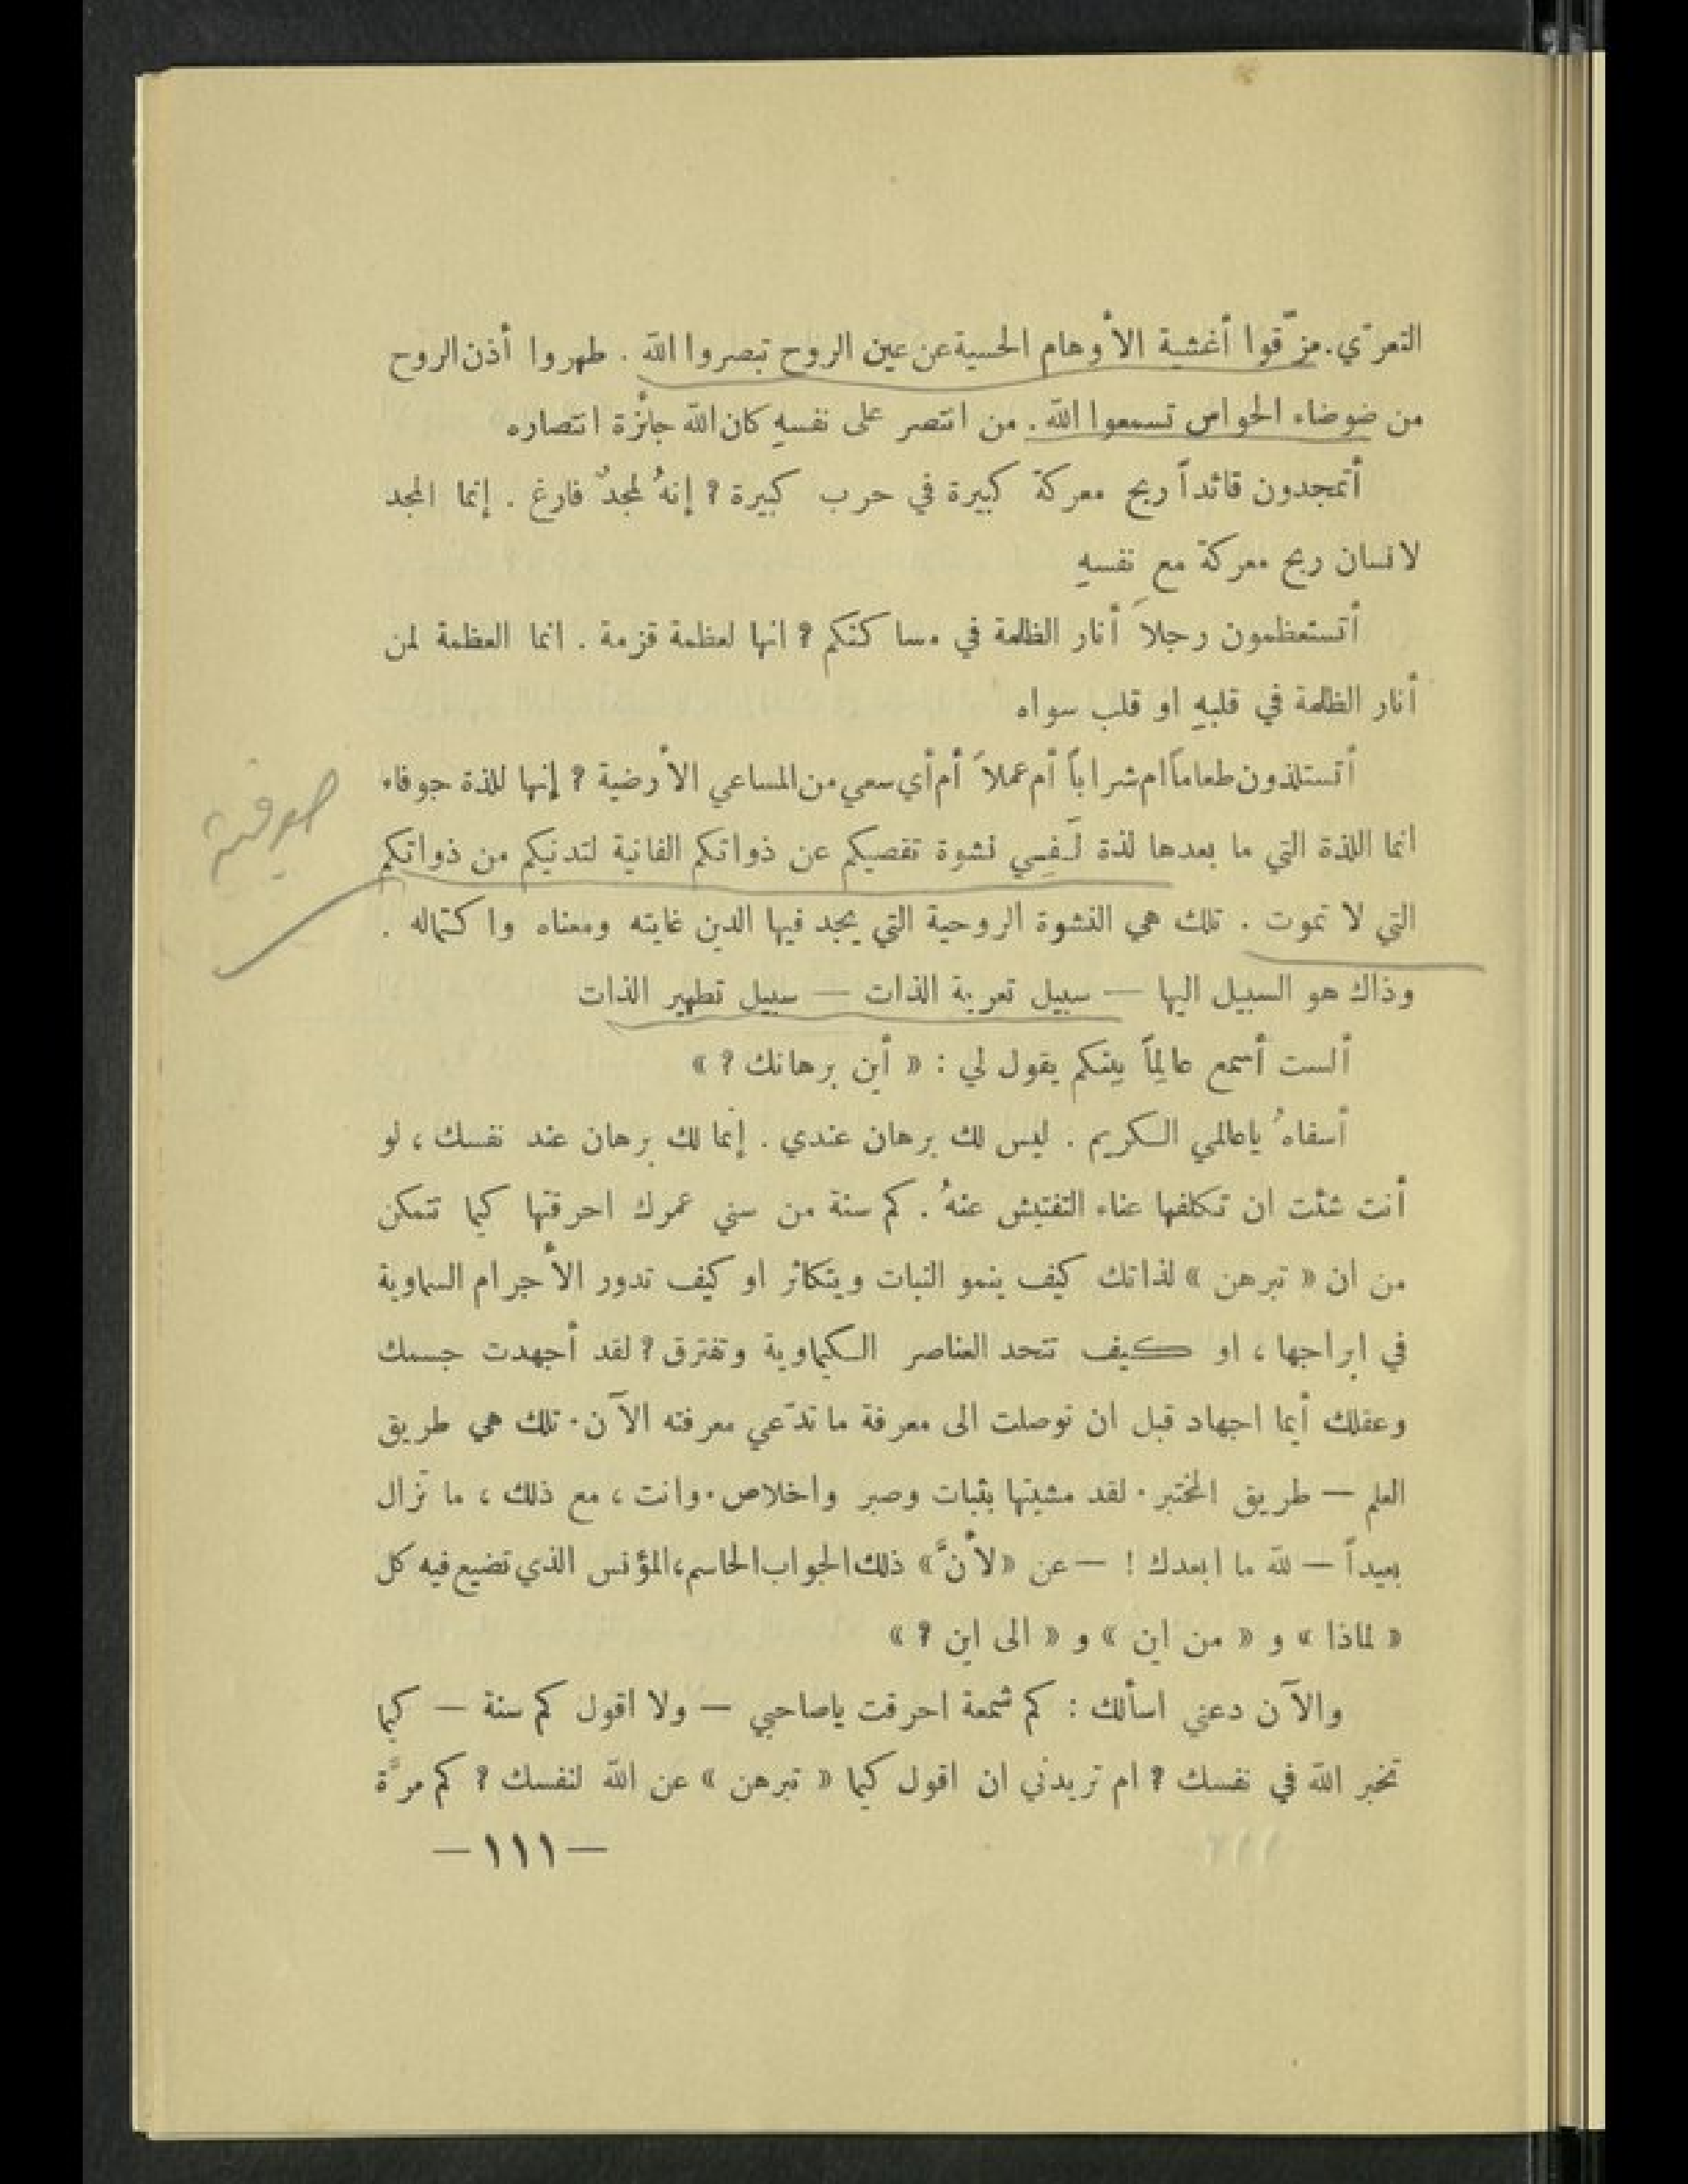 التعرّي. مزّقوا أغشية الأوهام الحسية عن عين الروح تبصروا الله . طهروا أذن الروح
من ضوضاء الحواس تسمعوا الله . من انتصر على نفسهِ كان الله جائزة انتصاره
أتمجدون قائداً ربح معركة كبيرة في حرب كبيرة ؟ إنهُ لمجدٌ فارغ . إنما المجد
لانسان ربح معركة مع نفسهِ
أتستعظمون رجلاً أنار الظلمة في مساكنكم ؟ انها لعظمة قزمة . انما العظمة لمن
أنار الظلمة في قلبهِ او قلب سواه
أتستلذون طعاماً ام شراباً أم عملاً أم أي سعي من المساعي الأرضية ؟ إنها للذة جوفاء
صوفية
انما اللذة التي ما بعدها لذة لَفِـي نشوة تقصيكم عن ذواتكم الفانية لتدنيكم من ذواتكم
التي لا تموت . تلك هي النشوة الروحية التي يجد فيها الدين غايته ومعناه واكتماله .
وذاك هو السبيل اليها — سبيل تعرية الذات — سبيل تطهير الذات
ألست أسمع عالِماً بينكم يقول لي : « أين برهانك ؟ »
أسفاهُ ياعالمي الكريم . ليس لك برهان عندي . إنما لك برهان عند نفسك ، لو
أنت شئت ان تكلفها عناء التفتيش عنهُ . كم سنة من سني عمرك احرقتها كيما تتمكن
من ان « تبرهن » لذاتك كيف ينمو النبات ويتكاثر او كيف تدور الأجرام السماوية
في ابراجها ، او كيف تتحد العناصر الكيماوية وتفترق ؟ لقد أجهدت جسمك
وعقلك أيما اجهاد قبل ان توصلت الى معرفة ما تدّعي معرفته الآن . تلك هي طريق
العلم — طريق المختبر . لقد مشيتها بثبات وصبر واخلاص . وانت ، مع ذلك ، ما تزال
بعيداً — لله ما ابعدك ! — عن «لأنَّ» ذلك الجواب الحاسم ، المؤنس الذي تضيع فيه كل
« لماذا » و « من اين » و « الى اين ؟ »
والآن دعني اسألك : كم شمعة احرقت ياصاحبي — ولا اقول كم سنة — كيما
تخبر الله في نفسك ؟ ام تريدني ان اقول كيما « تبرهن » عن الله لنفسك ؟ كم مرَّة
— ١١١ —